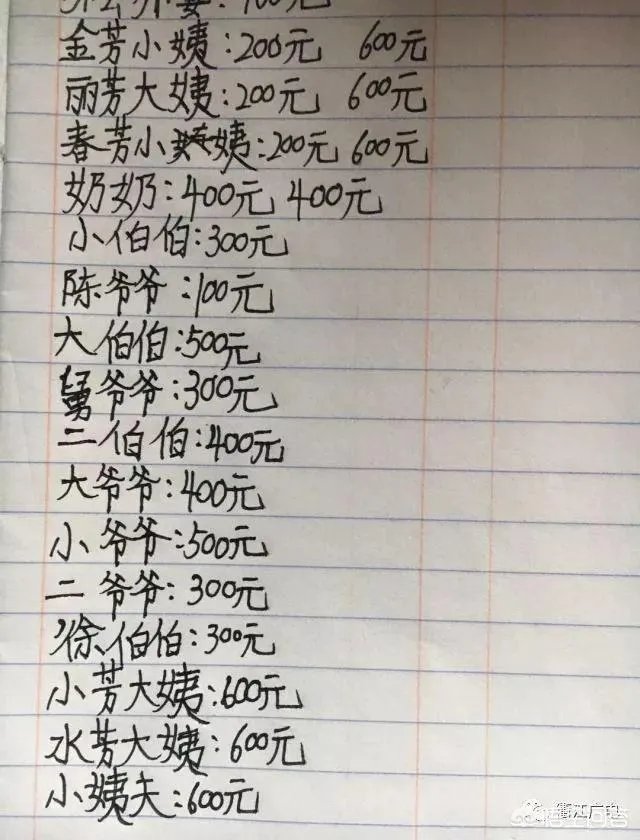 外公外婆:400元
金芳小姨:200元 600元
丽芳大姨:200元 600元
春芳小姨:200元 600元
奶奶:400元 400元
小伯伯:300元
陈爷爷:100元
大伯伯:500元
舅爷爷:300元
二伯伯:400元
大爷爷:400元
小爷爷:500元
二爷爷:300元
徐伯伯:300元
小芳大姨:600元
水芳大姨:600元
小姨夫:600元
衢江广电
悟空问答